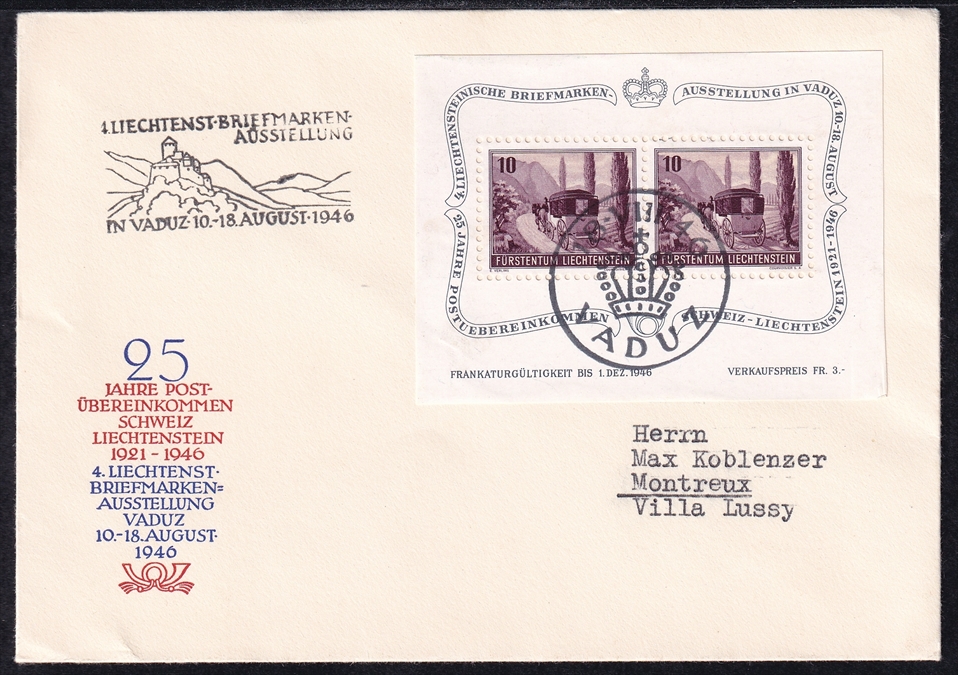 4.LIECHTENST·BRIEFMARKEN-
AUSSTELLUNG
IN VADUZ·10.-18.AUGUST·1946
4.LIECHTENSTEINISCHE BRIEFMARKEN-
AUSSTELLUNG IN VADUZ 10.-18.AUGUST
25 JAHRE POSTUEBEREINKOMMEN
SCHWEIZ-LIECHTENSTEIN 1921-1946
10
FÜRSTENTUM LIECHTENSTEIN
10
FÜRSTENTUM LIECHTENSTEIN
VADUZ
FRANKATURGÜLTIGKEIT BIS 1. DEZ. 1946
VERKAUFSPREIS FR. 3.-
25
JAHRE POST-
ÜBEREINKOMMEN
SCHWEIZ
LIECHTENSTEIN
1921-1946
4. LIECHTENST·
BRIEFMARKEN=
AUSSTELLUNG
VADUZ
10.-18. AUGUST·
1946
Herrn
Max Koblenzer
Montreux
Villa Lussy